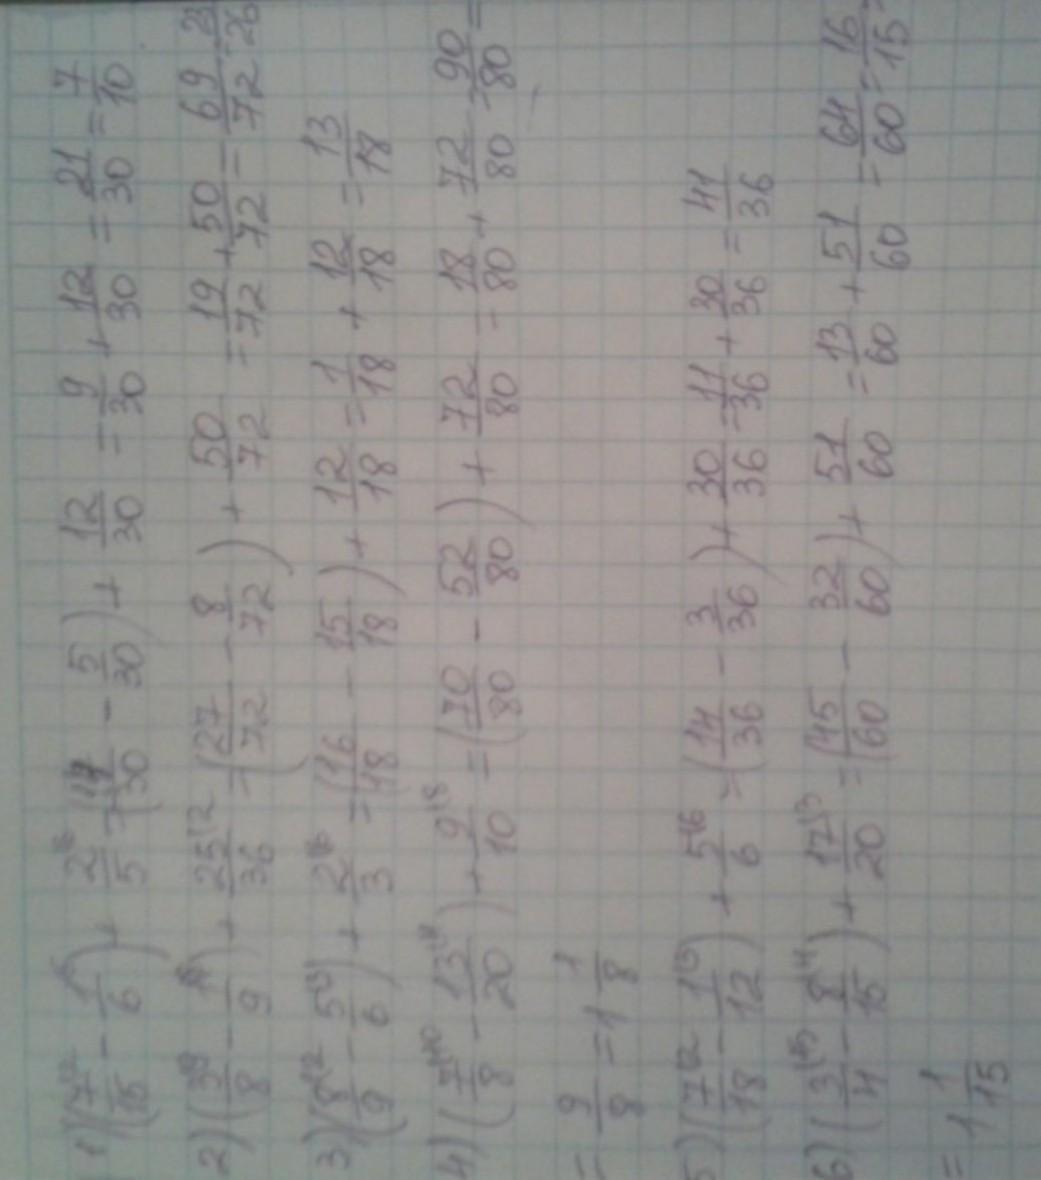 1) (7/15 - 1/6) + 2/5 = (14/30 - 5/30) + 12/30 = 9/30 + 12/30 = 21/30 = 7/10
2) (3/8 - 1/9) + 25/36 = (27/72 - 8/72) + 50/72 = 19/72 + 50/72 = 69/72
3) (8/9 - 5/6) + 2/3 = (16/18 - 15/18) + 12/18 = 1/18 + 12/18 = 13/18
4) (7/8 - 13/20) + 9/10 = (70/80 - 52/80) + 72/80 = 18/80 + 72/80 = 90/80 =
= 9/8 = 1 1/8
5) (7/18 - 1/12) + 5/6 = (14/36 - 3/36) + 30/36 = 11/36 + 30/36 = 41/36
6) (3/4 - 8/15) + 17/20 = (45/60 - 32/60) + 51/60 = 13/60 + 51/60 = 64/60 = 16/15 =
= 1 1/15